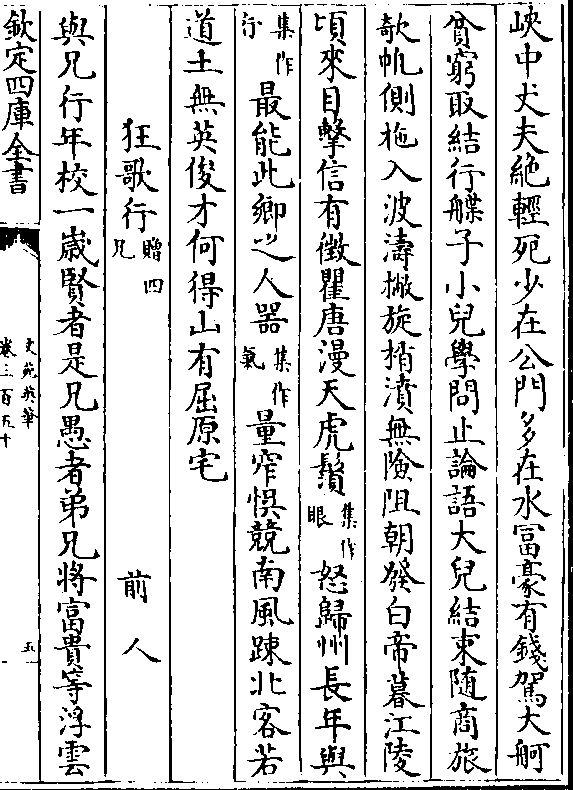 峽中丈夫絶輕死少在公門多在水富豪有錢駕大舸
貧窮取結行艓子小兒學問止論語大兒結束随商旅
欹帆側柂入波濤撇旋捎濆無險阻朝發白帝暮江陵
頃來目擊信有徴瞿唐漫天虎鬚集作眼怒歸州長年與
集作行最能此鄉之人器集作氣量窄悞競南風踈北客若
道土無英俊才何得山有屈原宅
狂歌行贈四兄 前人
與兄行年校一歳賢者是兄愚者弟兄將富貴等浮雲
欽定四庫全書
文苑英華
卷三百五十
五